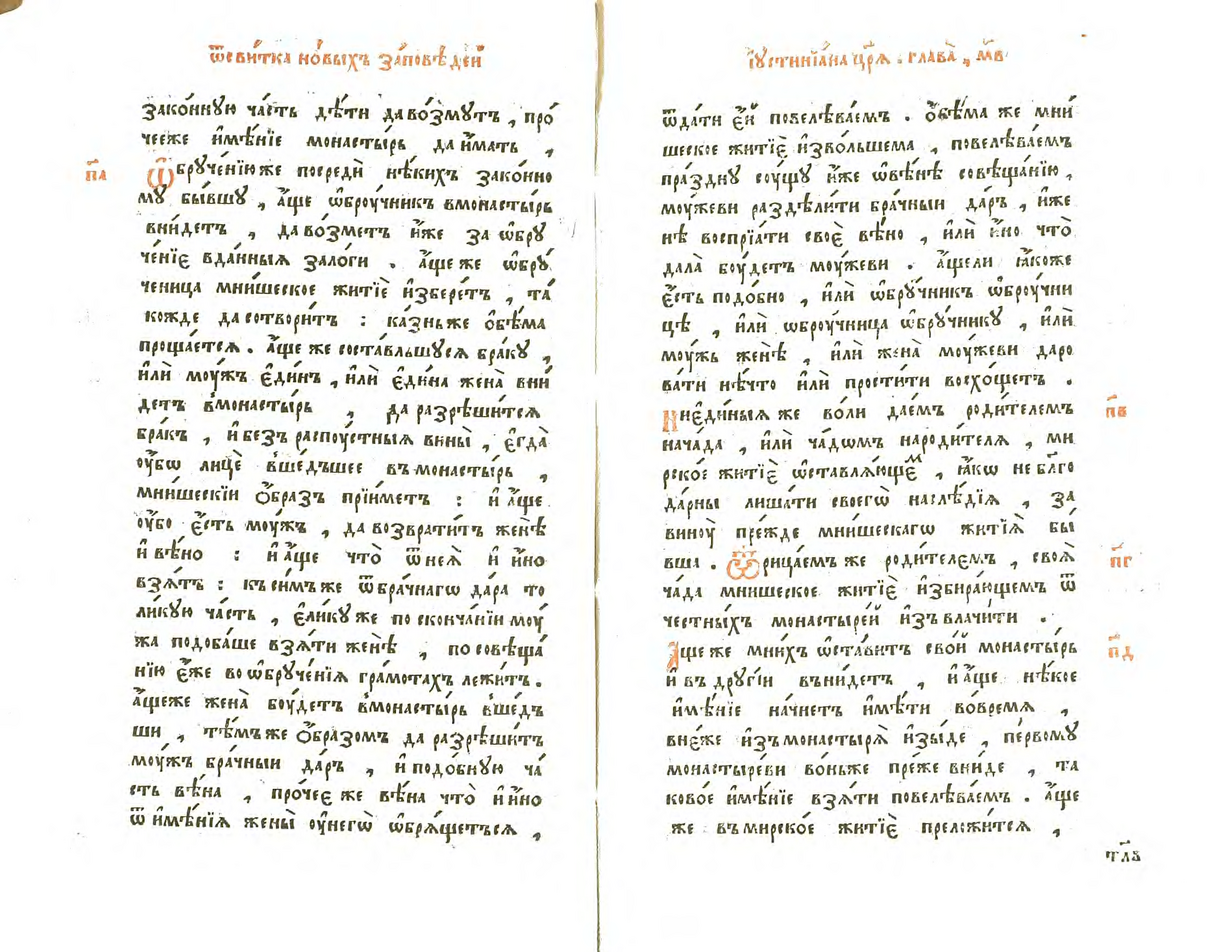 ѿсви́тка но́выхъ за́повѣдеи҆
зако́нꙋю ча́сть дѣ́ти да во́змутъ , про́
чееже и҆мѣ́нїе монасты́рь да и҆́мать ,
п҃а
Ѡ҆брꙋче́нїю же посредѝ нѣ́кихъ зако́нно
мꙋ бы́вшꙋ , а҆́ще ѡ҆броу́чникъ вмонасты́рь
вни́детъ , да во́зметъ и҆́же за ѡ҆брꙋ
че́нїе вда́нныѧ зало́ги . а҆́ще же ѡ҆брꙋ́
ченица мни́шеское житїѐ и҆збере́тъ , та́
кожде да сотвори́тъ : ка́знь же ѻ҆бѣ́ма
проща́етсѧ . а҆́ще же соста́вльшꙋсѧ бра́кꙋ ,
и҆лѝ моу́жъ є҆ди́нъ , и҆лѝ є҆ди́на жена̀ вни́
детъ вмонасты́рь , да разрѣши́тсѧ
бра́къ , и҆ без̾ распоу́стныѧ вины̀ , є҆гда̀
оу҆́бѡ лицѐ вше́дъшее въ монасты́рь ,
мни́шескїи ѻ҆́бразъ прїи́метъ : и҆ а҆́ще
оу҆́бо є҆́сть моу́жъ , да возврати́тъ женѣ̀
и҆ вѣ́но : и҆ а҆́ще что̀ ѿ неѧ̀ и҆ и҆́но
взѧ́тъ : къ си́мъ же ѿ бра́чнагѡ да́ра то
ли́кꙋю ча́сть , є҆ли́кꙋ же по сконча́нїи моу́
жа подоба́ше взѧ́ти женѣ̀ , по совѣща́
нїю є҆́же во ѡ҆брꙋче́нїѧ гра́мотахъ лежи́тъ .
а҆́щеже жена̀ боу́детъ вмонасты́рь вше́дъ
ши , тѣ́мъ же ѻ҆́бразомъ да разрѣши́тъ
моу́жъ бра́чныи да́ръ , и҆ подо́бнꙋю ча́
сть вѣ́на , про́чее же вѣ́на что̀ и҆ и҆́но
ѿ и҆мѣ́нїѧ жены̀ оу҆ негѡ̀ ѡ҆брѧ́щетъсѧ ,
їꙋстинїа́на цр҃ѧ . глава̀ , м҃в
ѿда́ти є҆́й повелѣва́емъ . ѻ҆бѣ́ма же мни́
шеское житїѐ и҆зво́льшема , повелѣва́емъ
пра́зднꙋ соу́щꙋ и҆́же ѡ҆ вѣ́нѣ совѣща́нїю ,
моу́жеви раздѣли́ти бра́чныи да́ръ , и҆́же
нѣ̀ воспрїа́ти своѐ вѣ́но , и҆лѝ и҆́но что̀
дала̀ боу́детъ моу́жеви . а҆́щели ꙗ҆́коже
є҆́сть подо́бно , и҆лѝ ѡ҆брꙋ́чникъ ѡ҆броу́чни
цѣ , и҆лѝ ѡ҆броу́чница ѡ҆брꙋ́чникꙋ , и҆лѝ
моу́жь женѣ̀ , и҆лѝ жена̀ моу́жеви даро
ва́ти нѣ́что и҆лѝ прости́ти восхо́щетъ .
п҃в
Ниеди́ныѧ же во́ли дае́мъ роди́телем
на ча́да , и҆лѝ ча́дѡмъ на роди́телѧ , ми
рское житїѐ ѡ҆ставлѧ́ющем , ꙗ҆́кѡ не бл҃го
да́рны лиша́ти своегѡ̀ наслѣ́дїѧ , за
виноу̀ пре́жде мни́шескагѡ житїѧ̀ бы́
вша . п҃г
Ѿрица́емъ же роди́телемъ , своѧ̀
ча́да мни́шеское житїѐ и҆збира́ющемъ ѿ
че́стны́хъ монастыре́й и҆зъ влачи́ти .
п҃д
А҆́ще же мни́хъ ѡ҆ста́витъ сво́й монасты́рь
и҆ въ дрꙋгі́и вни́детъ , и҆ а҆́ще нѣ́кое
и҆мѣ́нїе начне́тъ и҆мѣ́ти во́времѧ ,
вне́же и҆зъ монастырѧ̀ и҆зы́де , пе́рвомꙋ
монастыре́ви во́ньже пре́же вни́де , та
ково́е и҆мѣ́нїе взѧ́ти повелѣва́емъ . а҆́ще
же въ мирско́е житїѐ прело́житсѧ ,
тл҃в